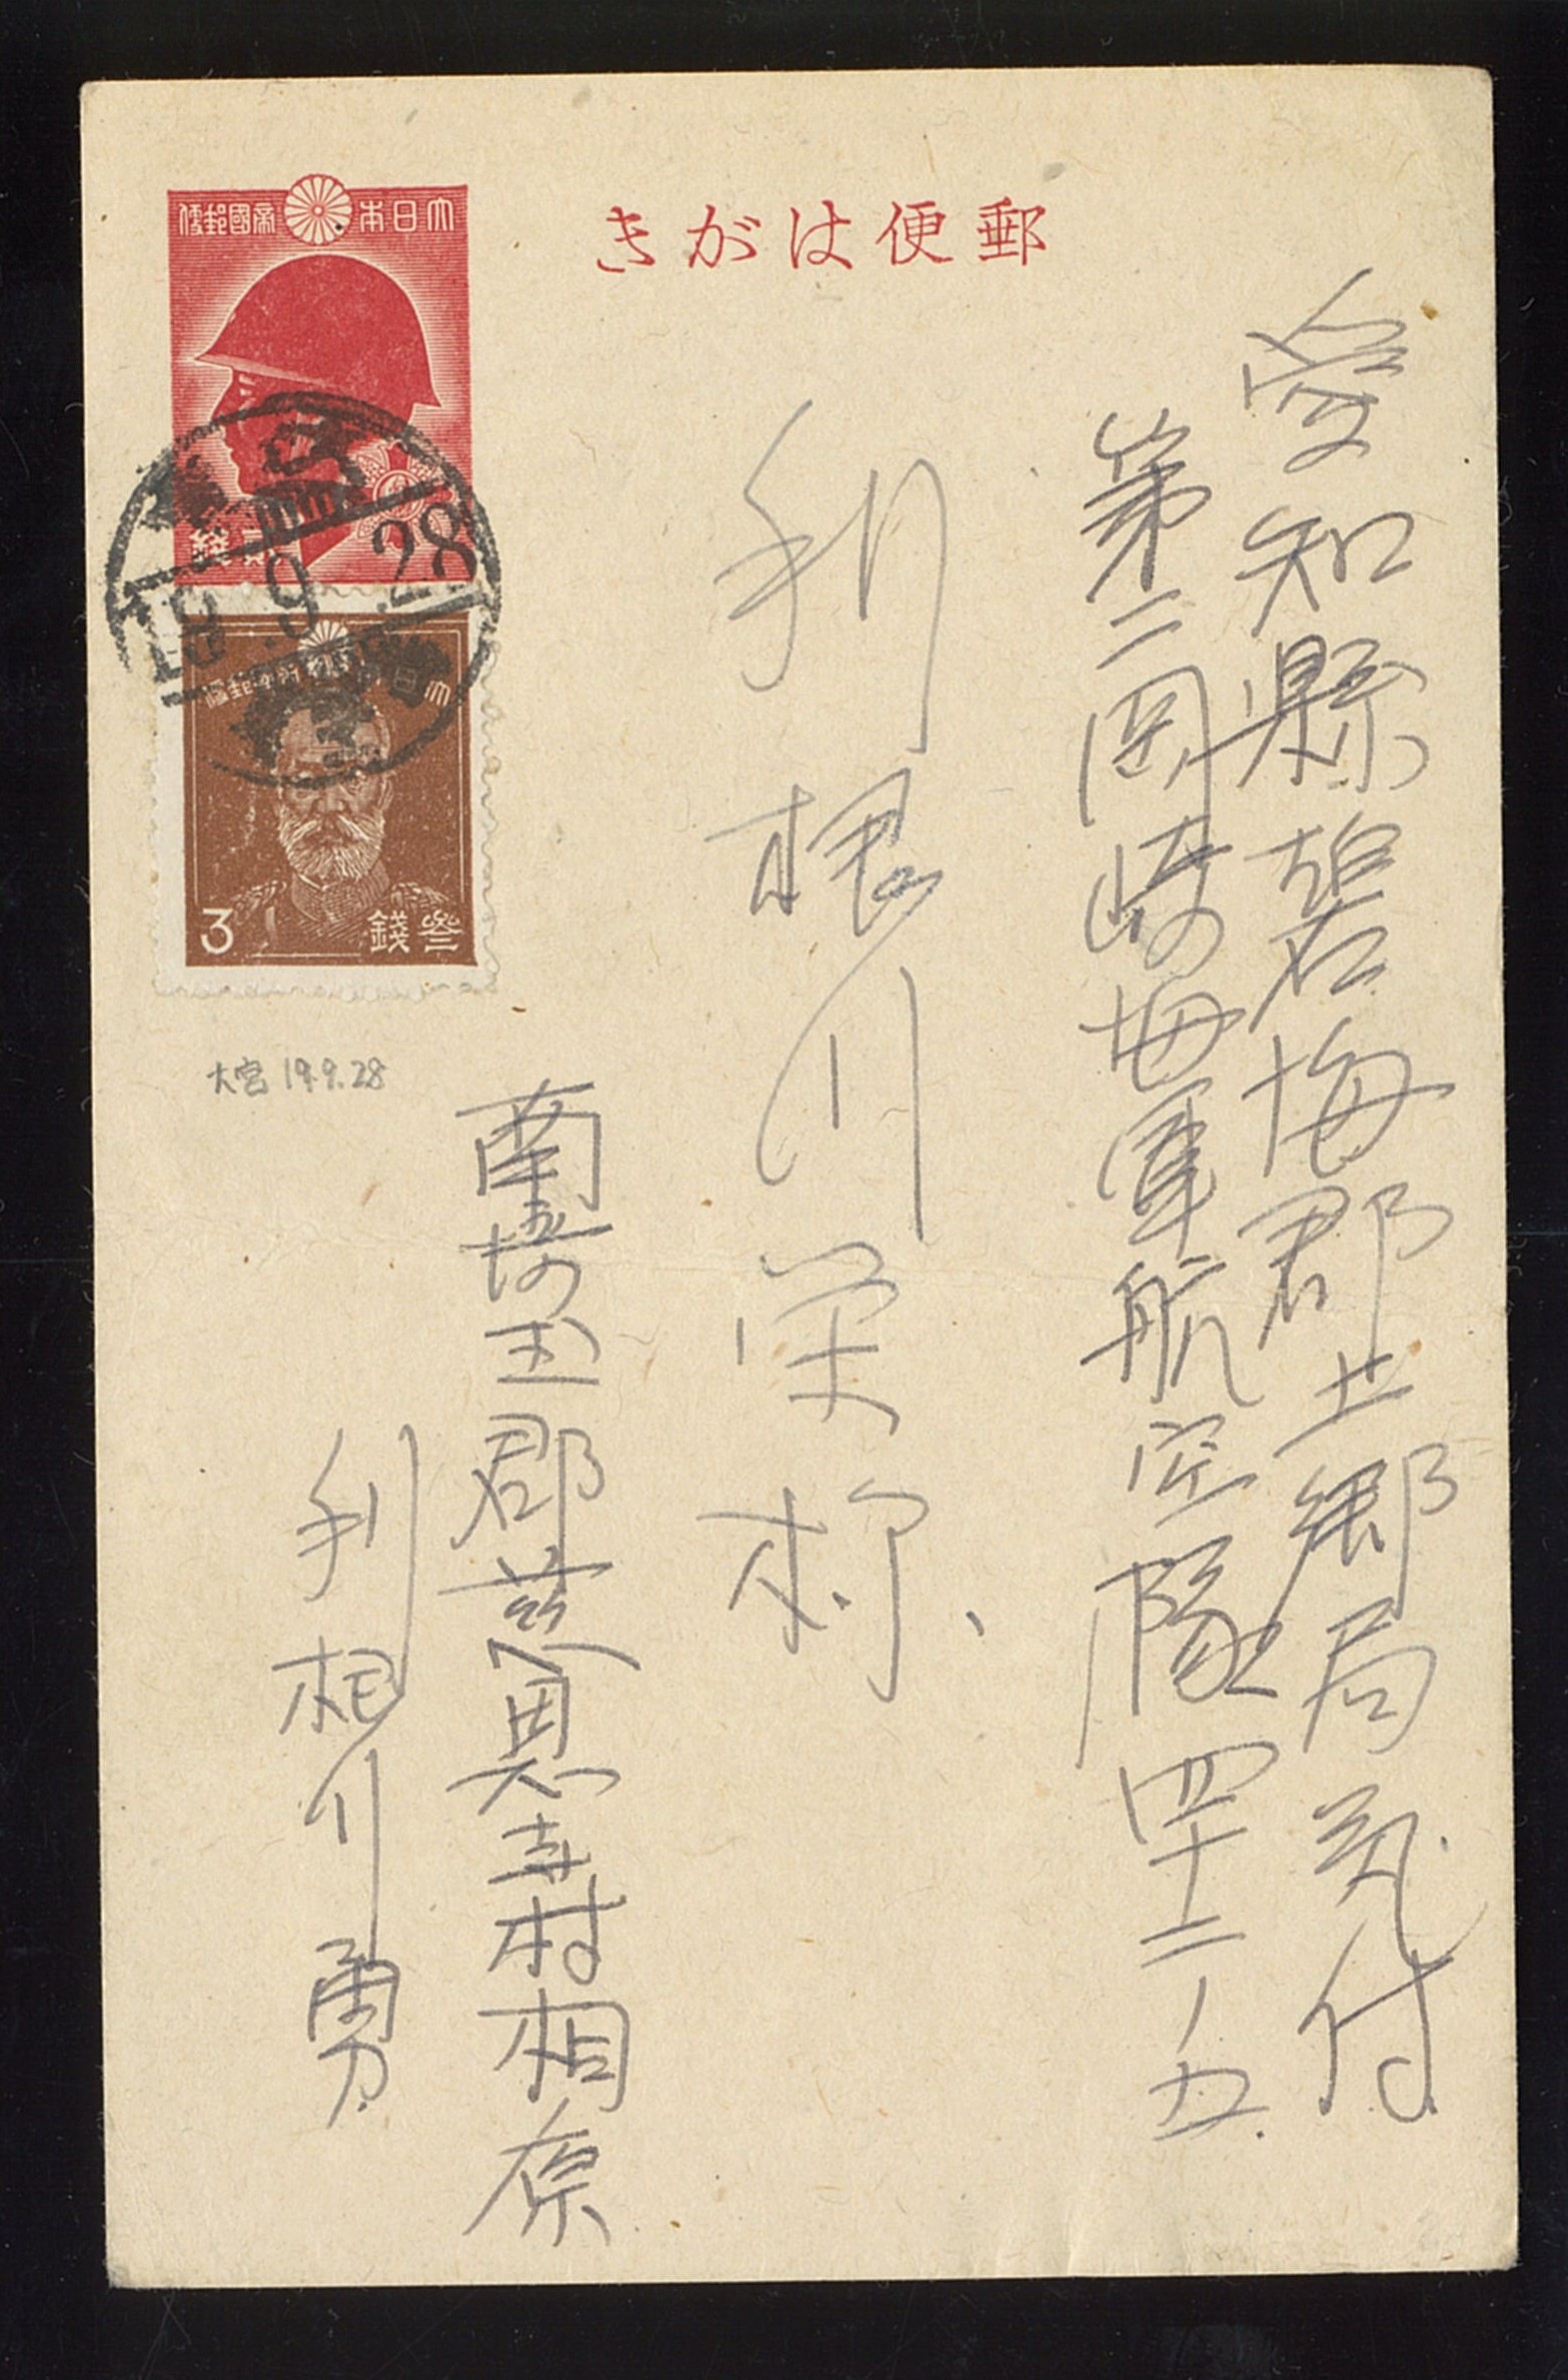 郵便はがき
愛知縣碧海郡上郷局気付
第二岡崎海軍航空隊四十二ノ五
利根川栄様
大日本帝國郵便
貳銭
大日本帝國郵便
参錢
3
19.9.28
大宮 19.9.28
南埼玉郡慈恩寺村相原
利根川勇